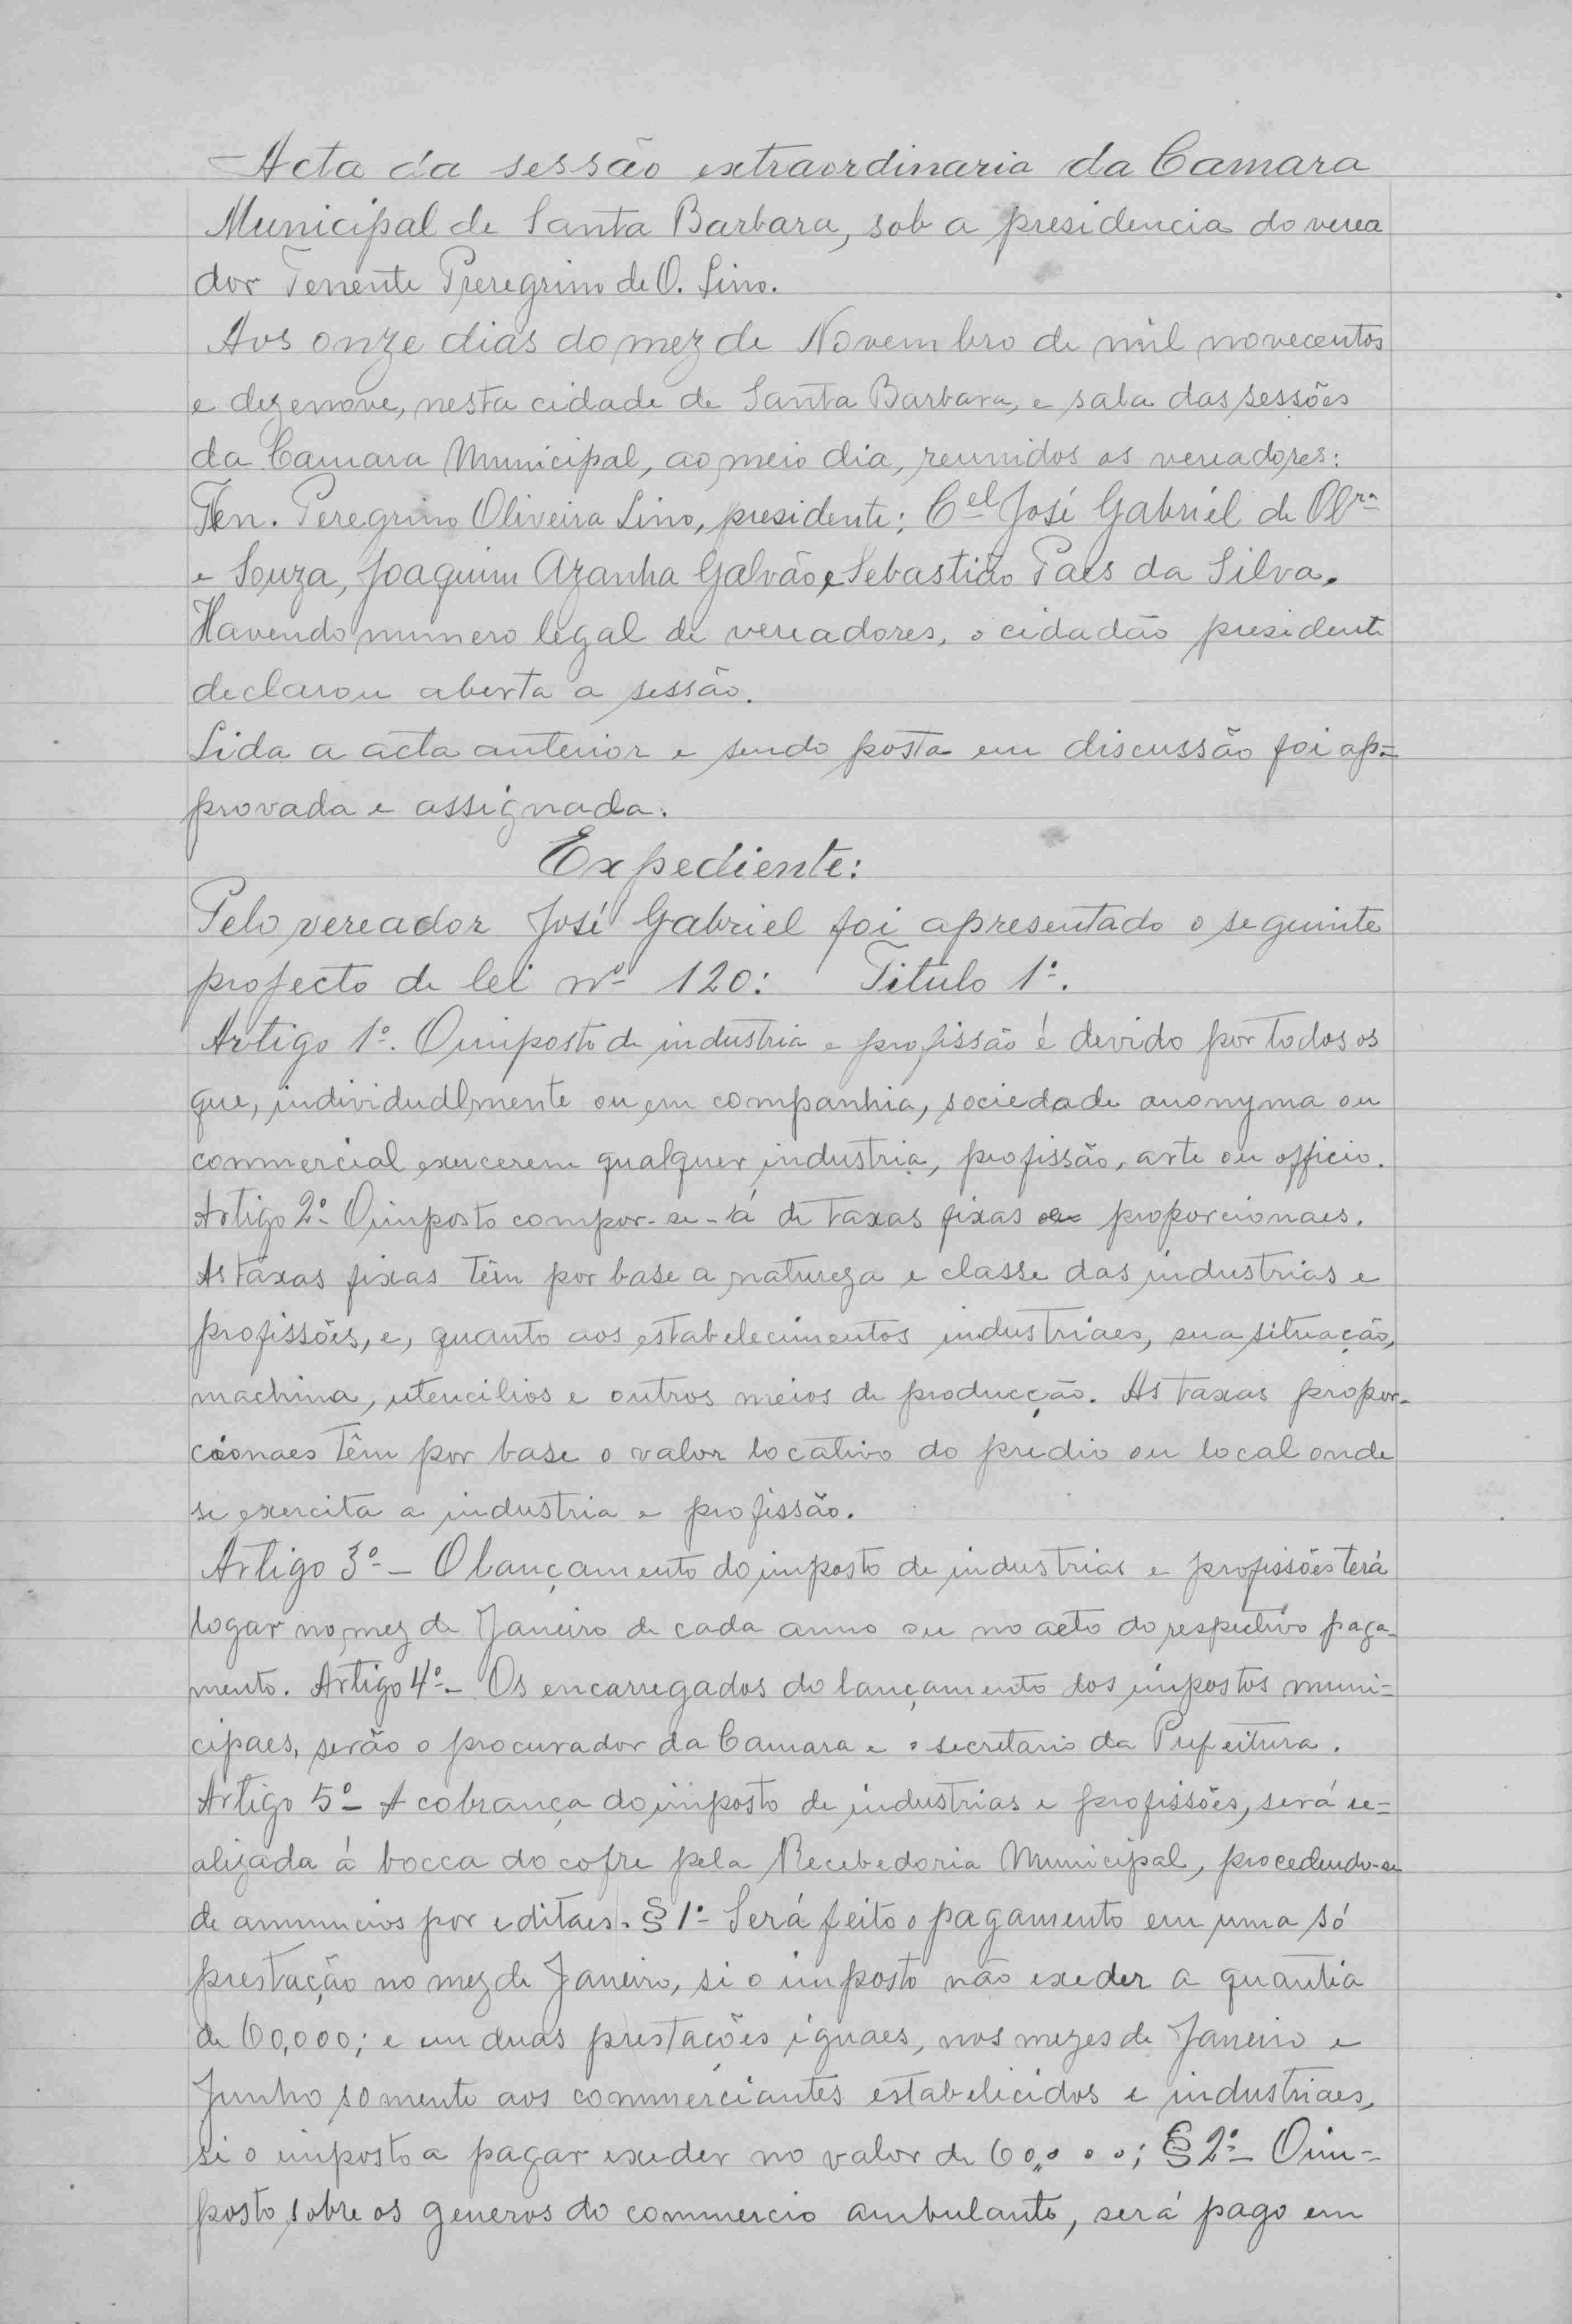 Acta da sessão extraordinaria da Camara
Municipal de Santa Barbara, sob a presidencia do verea
dor Tenente Peregrino de O. Lino.
Aos onze dias do mez de Novembro de mil novecentos
e dezenove, nesta cidade de Santa Barbara, e sala das sessões
da Camara Municipal, ao meio dia, reunidos os vereadores:
Ten. Peregrino Oliveira Lino, presidente; Cel José Gabriel de Olra
e Souza, Joaquim Azanha Galvão e Sebastião Paes da Silva.
Havendo numero legal de vereadores, o cidadão presidente
declarou aberta a sessão.
Lida a acta anterior e sendo posta em discussão foi ap=
provada e assignada.
Expediente:
Pelo vereador José Gabriel foi apresentado o seguinte
projecto de lei nº 120: Titulo 1º.
Artigo 1º. O imposto de industria e profissão é devido por todos os
que, individualmente ou em companhia, sociedade anonyma ou
commercial exercerem qualquer industria, profissão, arte ou officio.
Artigo 2º- O imposto compor-se-á de taxas fixas ou proporcionaes.
As taxas fixas têm por base a natureza e classe das industrias e
profissões, e, quanto aos estabelecimentos industriaes, sua situação,
machina, utencilios e outros meios de producção. As taxas propor-
cionaes têm por base o valor locativo do predio ou local onde
se exercita a industria e profissão.
Artigo 3º- O lançamento do imposto de industrias e profissões terá
logar no mez de Janeiro de cada anno ou no acto do respectivo paga-
mento. Artigo 4º- Os encarregados do lançamento dos impostos muni=
cipaes, serão o procurador da Camara e o secretario da Prefeitura.
Artigo 5º- A cobrança do imposto de industrias e profissões, será re=
alizada á bocca do cofre pela Recebedoria Municipal, procedendo-se
de annuncios por editaes. § 1º- Será feito o pagamento em uma só
prestação no mez de Janeiro, si o imposto não exeder a quantia
de 60,000; e em duas prestações iguaes, nos mezes de Janeiro e
Junho somente aos commerciantes estabelicidos e industriaes,
si o imposto a pagar exeder no valor de 60,000; § 2º- O im=
posto sobre os generos do commercio ambulante, será pago em